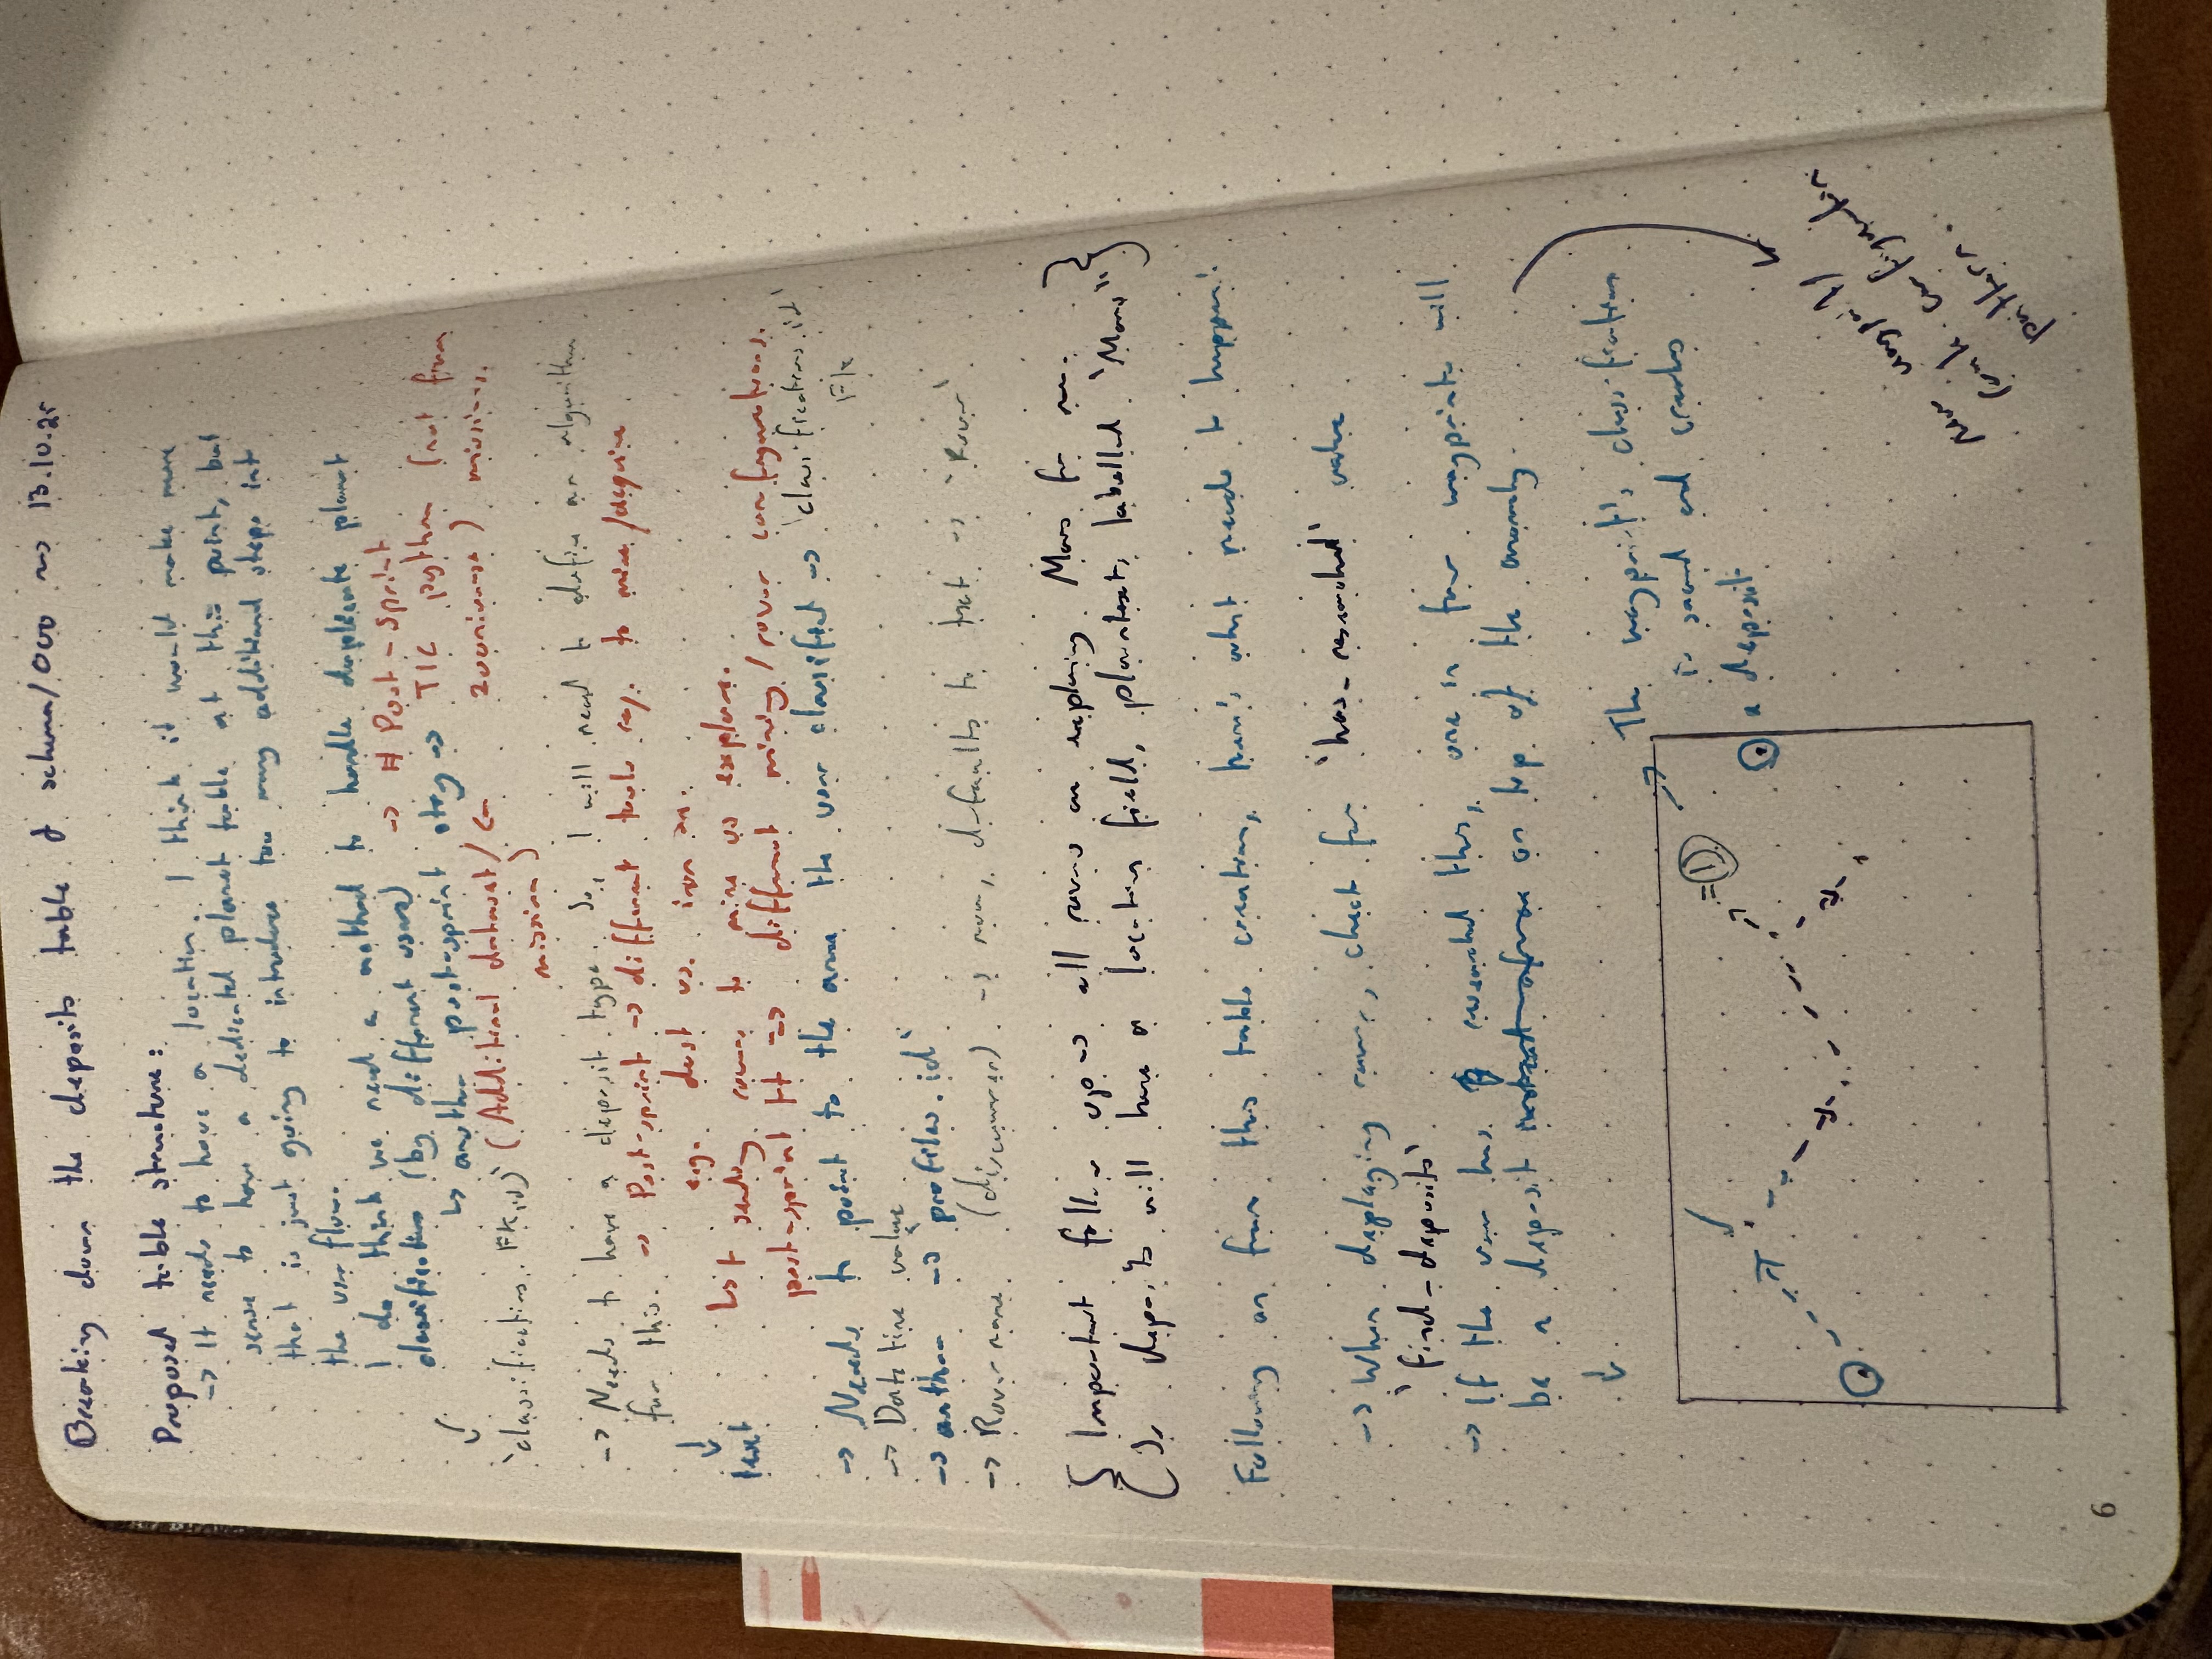 Breaking down the deposits table & schema/000 → 13.10.25
Proposed table structure:
→ It needs to have a location. I think it would make more
sense to have a dedicated planet table at this point, but
that is just going to introduce too many additional steps int
the user flow.
I do think we need a method to handle duplicate planet
classifications (by different users) → # Post-sprint
↳ another post-sprint story → TIC python (not from
(Additional dataset/ ← zooniverse) missions.
mission)
'classifications. FK, id')
→ Needs to have a deposit type. So, I will need to define an algorithm
for this. → Post-sprint → different tools req. to mine/acquire
e.g. dust vs. iron ?n.
text
↳ sending rovers to mine vs explore.
post-sprint tit → different mining/rover configurations.
→ Needs to point to the anom the user classified → 'classifications.id'
FK
→ Date time value
→ author → profiles.id'
→ Rover name (discoverer) → now, defaults to text → 'Rover'
{ Important follow up → all rovers are exploring Mars for now. }
(So deposits will have a location field, plaintext, labelled 'Mars'")
Following on from this table creation, here's what needs to happen:
→ When deploying rovers, check for 'has-researched' value
'find-deposits'
→ If the user has researched this, one in four waypoints will
be a deposit on top of the anomaly.
The waypoint's classification
is saved and creates
a deposit
New waypoint
can be configured in
pattern.
1
6